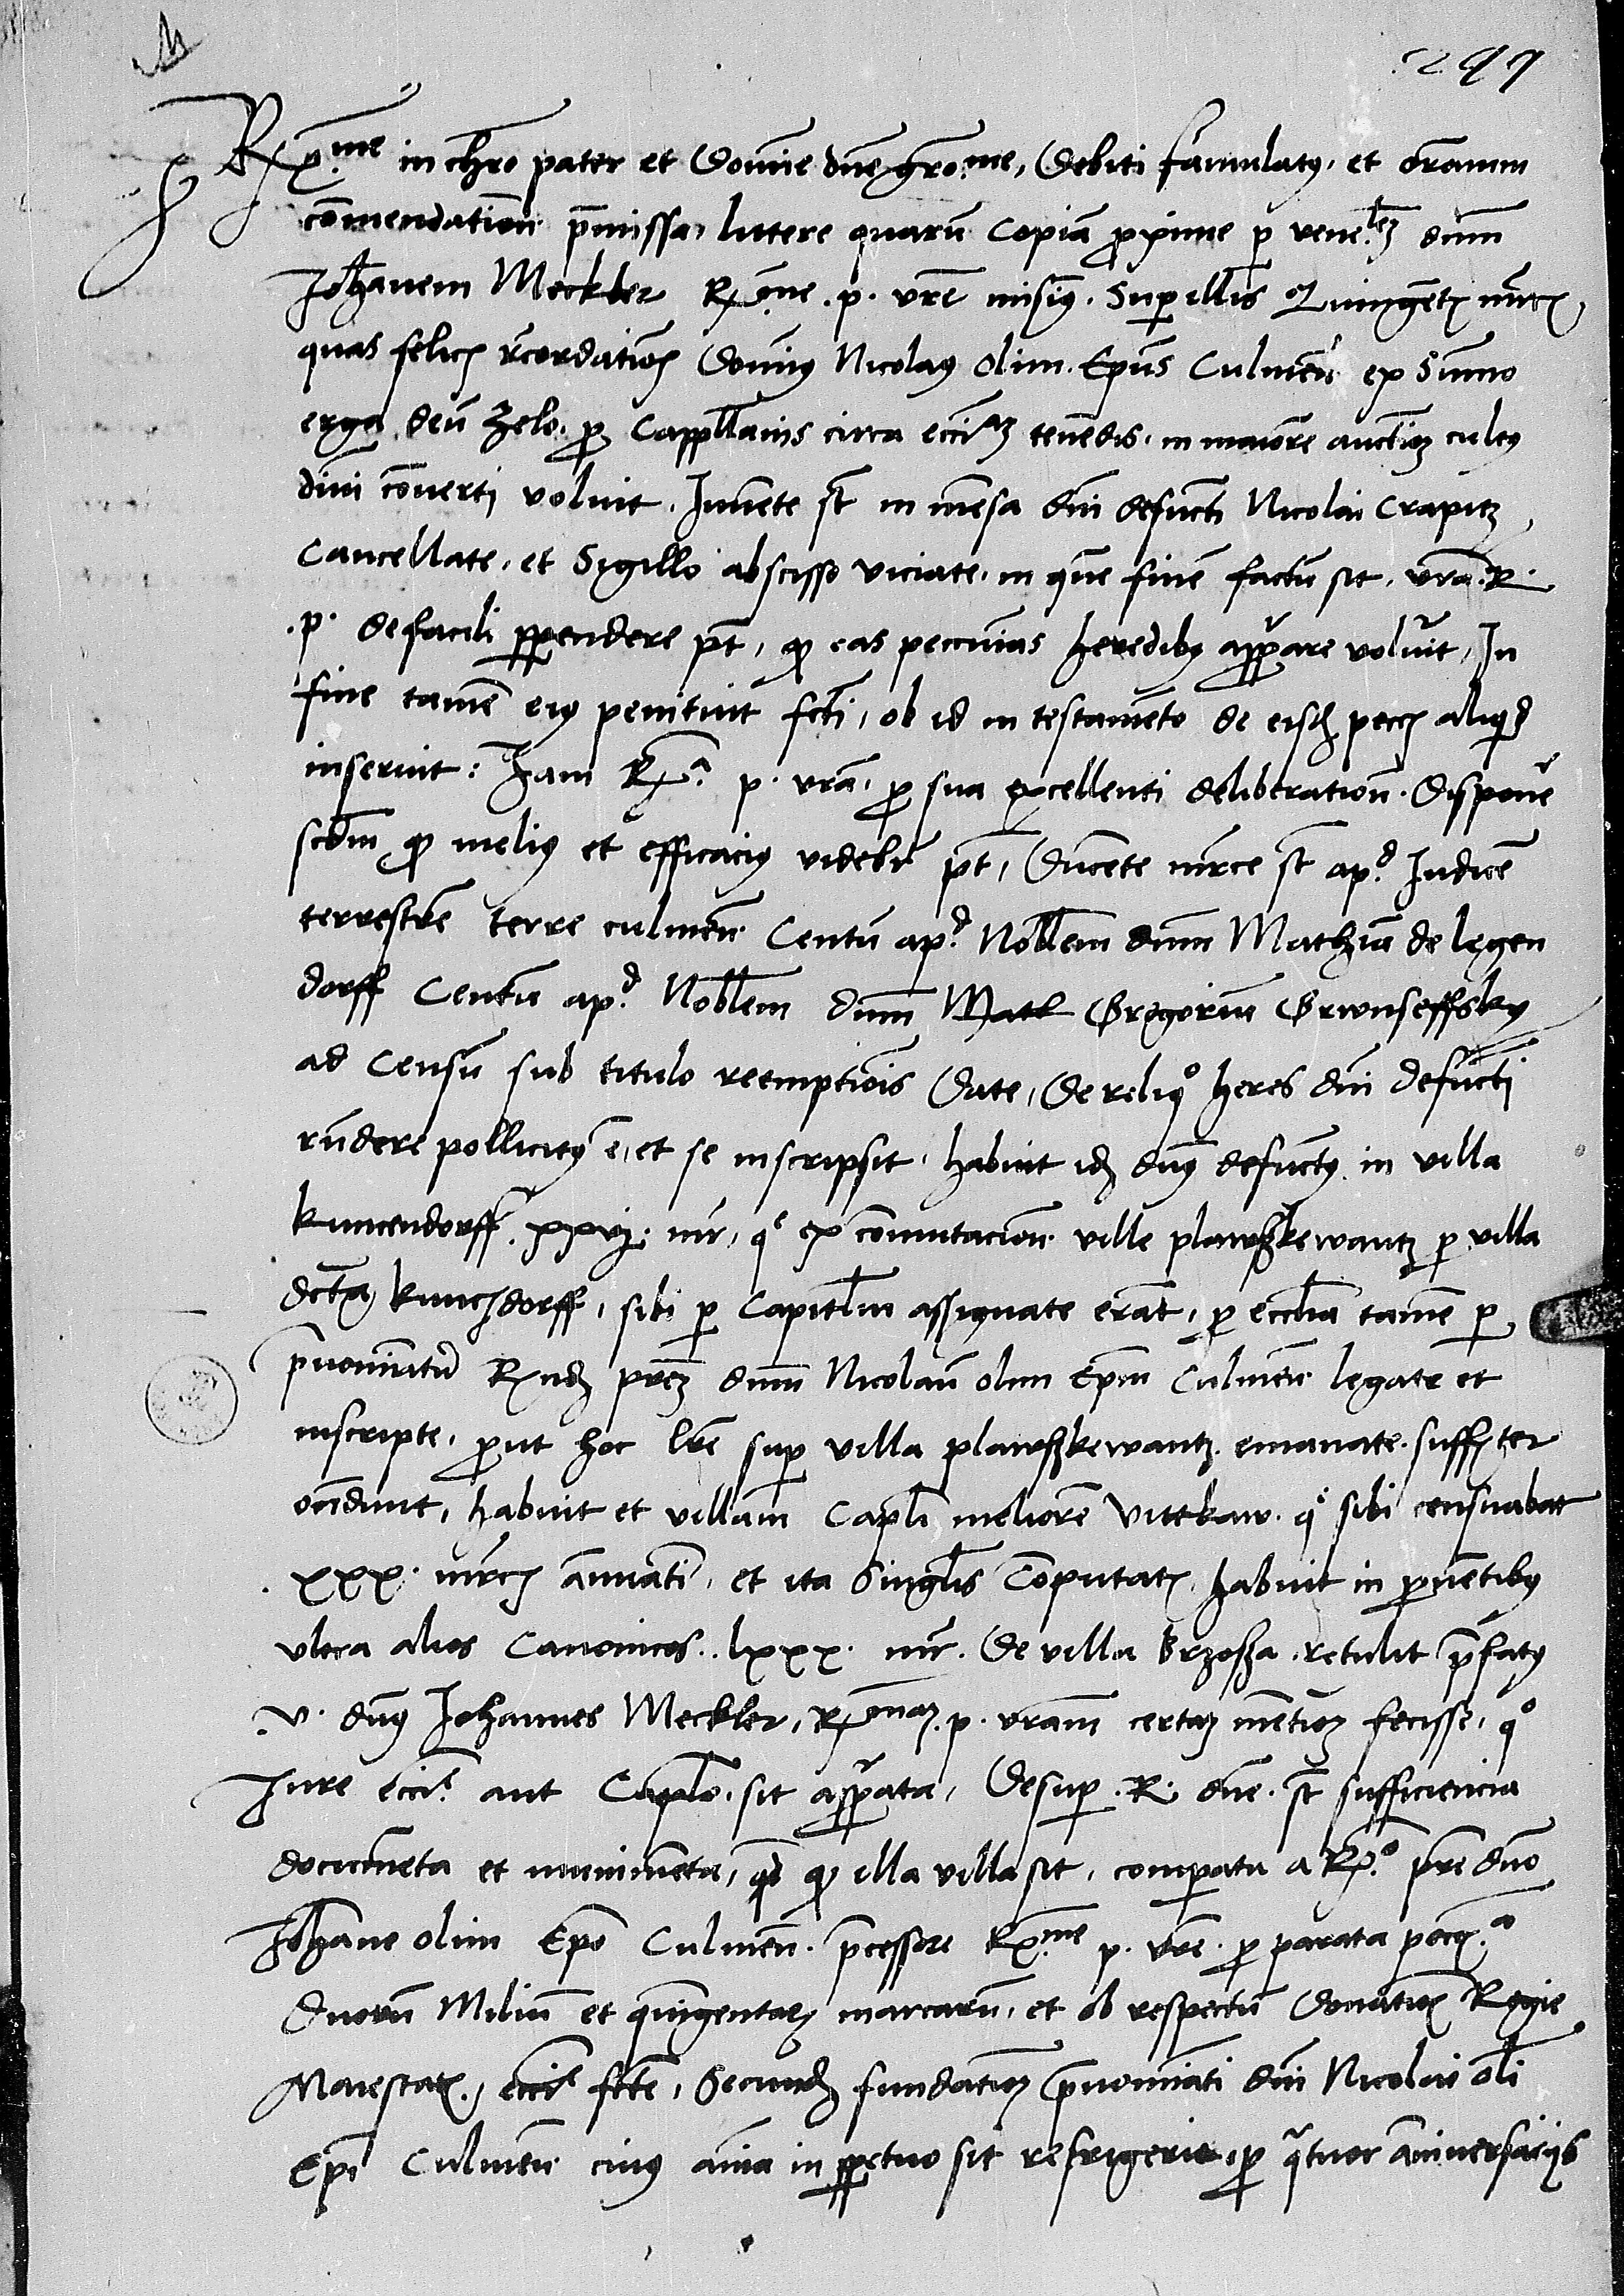 297
Rx.me in chro pater et Domine dne gro.me, Debiti famulatus, et oronum
commendation pmissa, littere quaru Copia proxime p vene.lez dnm
Johanem Meckler Rx.me. p. vre misimus. Sup illis Quingetis mrcis
quas felicis recordationis Dominus Nicolaus olim. Epus Culmen ex Summo
erga deu Zelo. pro Cappllanis circa eccliaz tenedis. in maiore auctioz cultus
diui conuerti voluit. Inuente st in mesa dni defuncti Nicolai Crapitz,
Cancellate. et Sigillo abscisso viciate. in que fine factu sit. vra. R.
.p. de facili ppendere pt, quod eas peccunias heredibus appare voluit, In
fine tame eius penituit fcti, ob id in testameto de eisdem pecciis aliquid
inseruit: Jam Rx.a p. vra, pro sua excellenti deliberation. disponet
scdm quod melius et efficacius videbr pt, Ducente mrce st apd Iudice
terrestre terre culmen Centu apd Nobllem dnm Mathia de legen
dorff Centu apd Nobllem dnm Gregorium Grwnseffsky
ad Censu sub titulo reemptiois Date, De reliquo heres dni defuncti
rndere pollicitus e, et se inscripsit. habuit idem dnus defunctus in villa
kuncendorff. xxvj. mr, que ex commutacion ville plawszkewantz p villa
dcta kunczdorff, sibi p Capitlum assignate erat, pro ecclia tame p
pnominatu Rxndum prez dnm Nicolau olim Epm Culmen legate et
inscripte, prout hoc lre sup villa plawszkewantz emanate. sufficienter
ondunt, habuit et villam Capli meliore Vittkaw. que sibi censuabat
xxx. mrcis annuati, et ita Singlis Computatis habuit in prouetibus
vltra alios Canonicos. lxxx. mr. De villa brzosza. retulit pfatus
.v. dnus Johannes Meckler, Rx.maz. p. vram certaz mentioz fecisse, quo
Iure eccle. aut Caplo. sit appata, Desup. R. dne. st sufficiencia
documeta et munimeta, quod illa villa sit, compata a Rx.o pre dno
Johane olim Epo Culmen. pcessore Rx.me p. vre. pro parata pecc.a
duoru Miliu et quingentarum marcaru, et ob respectu Donationis Regie
Maiestatis, eccle fcte, Secundum fundatioz pnominati dni Nicolai oli
Epi Culmen cuius aima in ppetuo sit refrigerio, pro quatuor anniuersariis